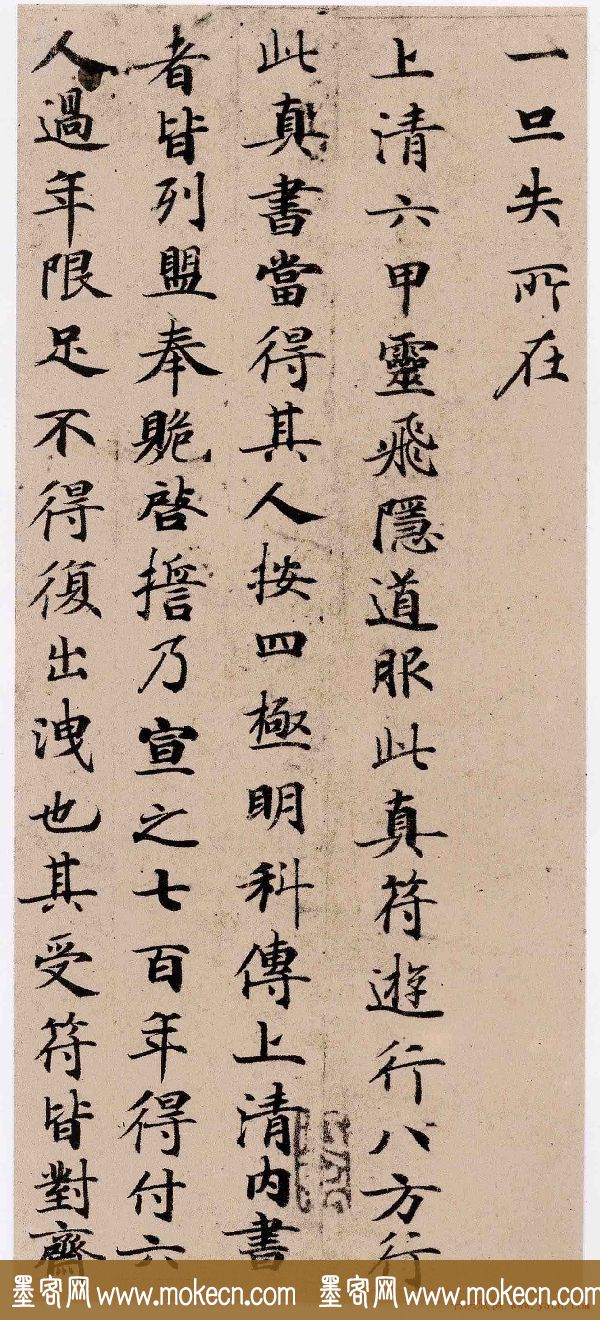 一旦失所在
上清六甲靈飛隱道服此真符遊行八方行
此真書當得其人按四極明科傳上清內書
者皆列盟奉貺啓擔乃宣之七百年得付六
人過年限足不得復出洩也其受符皆對齋
墨客网 www.mokecn.com 墨客网 www.mokecn.com